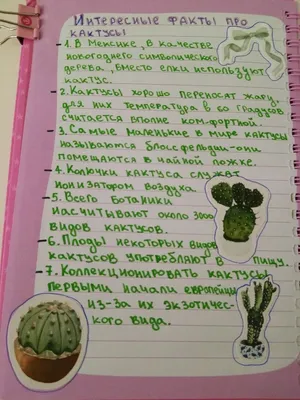 Интересные факты про
кактусы
1. В Мексике, в качестве
новогоднего символического
дерева, вместо елки используют
кактус.
2. Кактусы хорошо переносят жару,
для них температура в 60 градусов
считается вполне комфортной.
3. Самые маленькие в мире кактусы
называются блоссфельдии-они
помещаются в чайной ложке.
4. Колючки кактуса служат
ионизатором воздуха.
5. Всего ботаники
насчитывают около 3000
видов кактусов.
6. Плоды некоторых видов
кактусов употребляют в пищу.
7. Коллекционировать кактусы
первыми начали европейцы
из-за их экзотичес-
кого вида.